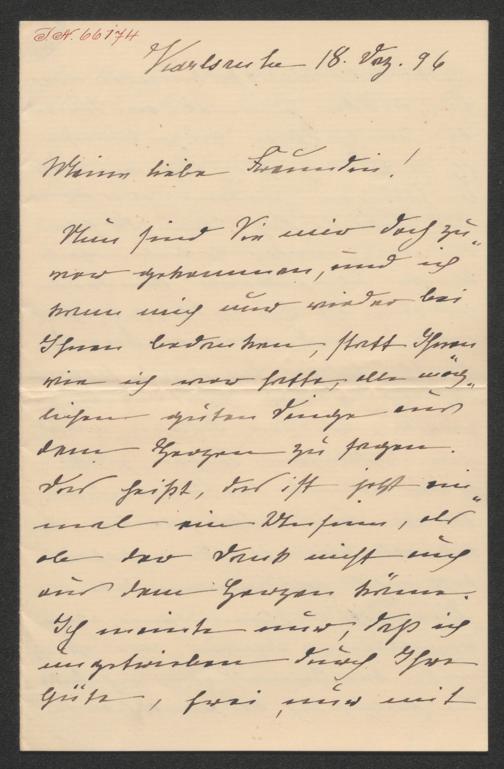 I.N. 66174
Karlsruhe 18. Dez. 96
Meine liebe Freundin!
Nun sind Sie mir doch zu-
vor gekommen, und ich
kann mich nur wieder bei
Ihnen bedanken, statt Ihnen
wie ich vor hatte, alle mög-
lichen guten Dinge aus
dem Herzen zu sagen.
Das heißt, das ist jetzt ein-
mal ein Unsinn, als
ob der Dank nicht auch
aus dem Herzen käme.
Ich meinte nur, daß ich
ungetrieben durch Ihre
Güte, frei nur mit